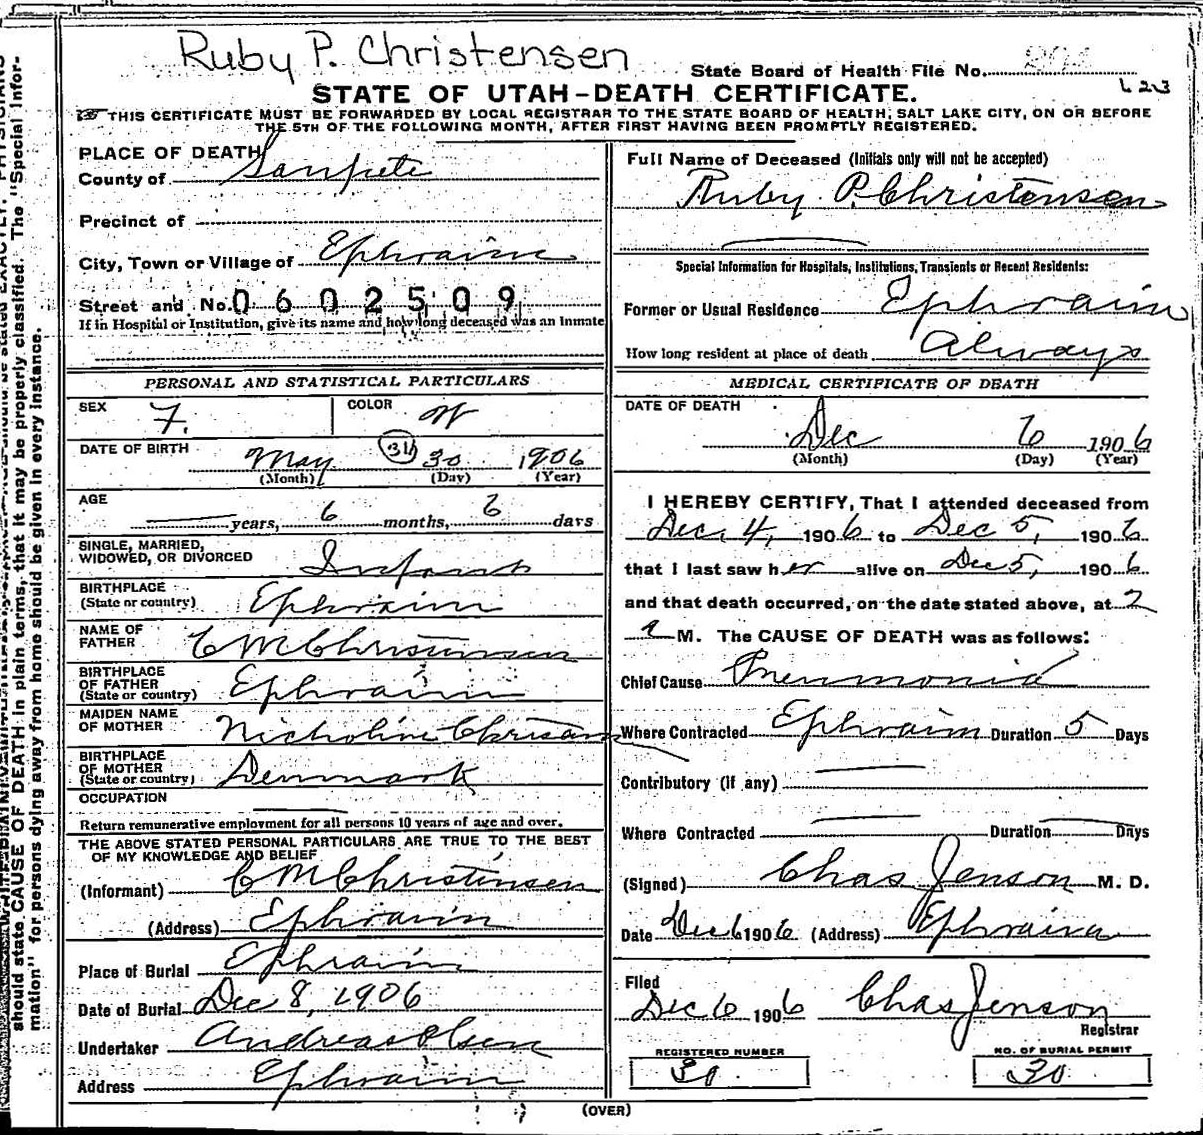 Ruby P. Christensen
State Board of Health File No.
623
STATE OF UTAH-DEATH CERTIFICATE.
THIS CERTIFICATE MUST BE FORWARDED BY LOCAL REGISTRAR TO THE STATE BOARD OF HEALTH, SALT LAKE CITY, ON OR BEFORE
THE 5TH OF THE FOLLOWING MONTH, AFTER FIRST HAVING BEEN PROMPTLY REGISTERED.
PLACE OF DEATH
County of Sanpete
Precinct of
City, Town or Village of Ephraim
Street and No. 0602509
If in Hospital or Institution, give its name and how long deceased was an Inmate
PERSONAL AND STATISTICAL PARTICULARS
SEX F. COLOR W
DATE OF BIRTH May 31 30 1906
(Month) (Day) (Year)
AGE years, 6 months, 6 days
SINGLE, MARRIED,
WIDOWED, OR DIVORCED Infant
BIRTHPLACE
(State or country) Ephraim
NAME OF
FATHER C M Christensen
BIRTHPLACE
OF FATHER
(State or country) Ephraim
MAIDEN NAME
OF MOTHER Nicholine
BIRTHPLACE
OF MOTHER
(State or country) Denmark
OCCUPATION
Return remunerative employment for all persons 10 years of age and over.
THE ABOVE STATED PERSONAL PARTICULARS ARE TRUE TO THE BEST
OF MY KNOWLEDGE AND BELIEF
(Informant) C M Christensen
(Address) Ephraim
Place of Burial Ephraim
Date of Burial Dec 8, 1906
Undertaker Andreas Olsen
Address Ephraim
Full Name of Deceased (Initials only will not be accepted)
Ruby P. Christensen
Special Information for Hospitals, Institutions, Transients or Recent Residents:
Former or Usual Residence Ephraim
How long resident at place of death Always
MEDICAL CERTIFICATE OF DEATH
DATE OF DEATH
Dec 6 1906
(Month) (Day) (Year)
I HEREBY CERTIFY, That I attended deceased from
Dec. 4, 1906 to Dec 5, 1906
that I last saw her alive on Dec 5, 1906
and that death occurred, on the date stated above, at 2
a M. The CAUSE OF DEATH was as follows:
Chief Cause Pneumonia
Where Contracted Ephraim Duration 5 Days
Contributory (if any)
Where Contracted Duration Days
(Signed) Chas Jenson M. D.
Date Dec 6 1906 (Address) Ephraim
Filed
Dec 6 1906 Chas Jenson
Registrar
REGISTERED NUMBER
30
NO. OF BURIAL PERMIT
30
(OVER)
should state CAUSE OF DEATH in plain terms, that it may be properly classified. The "Special Infor-
mation" for persons dying away from home should be given in every instance.